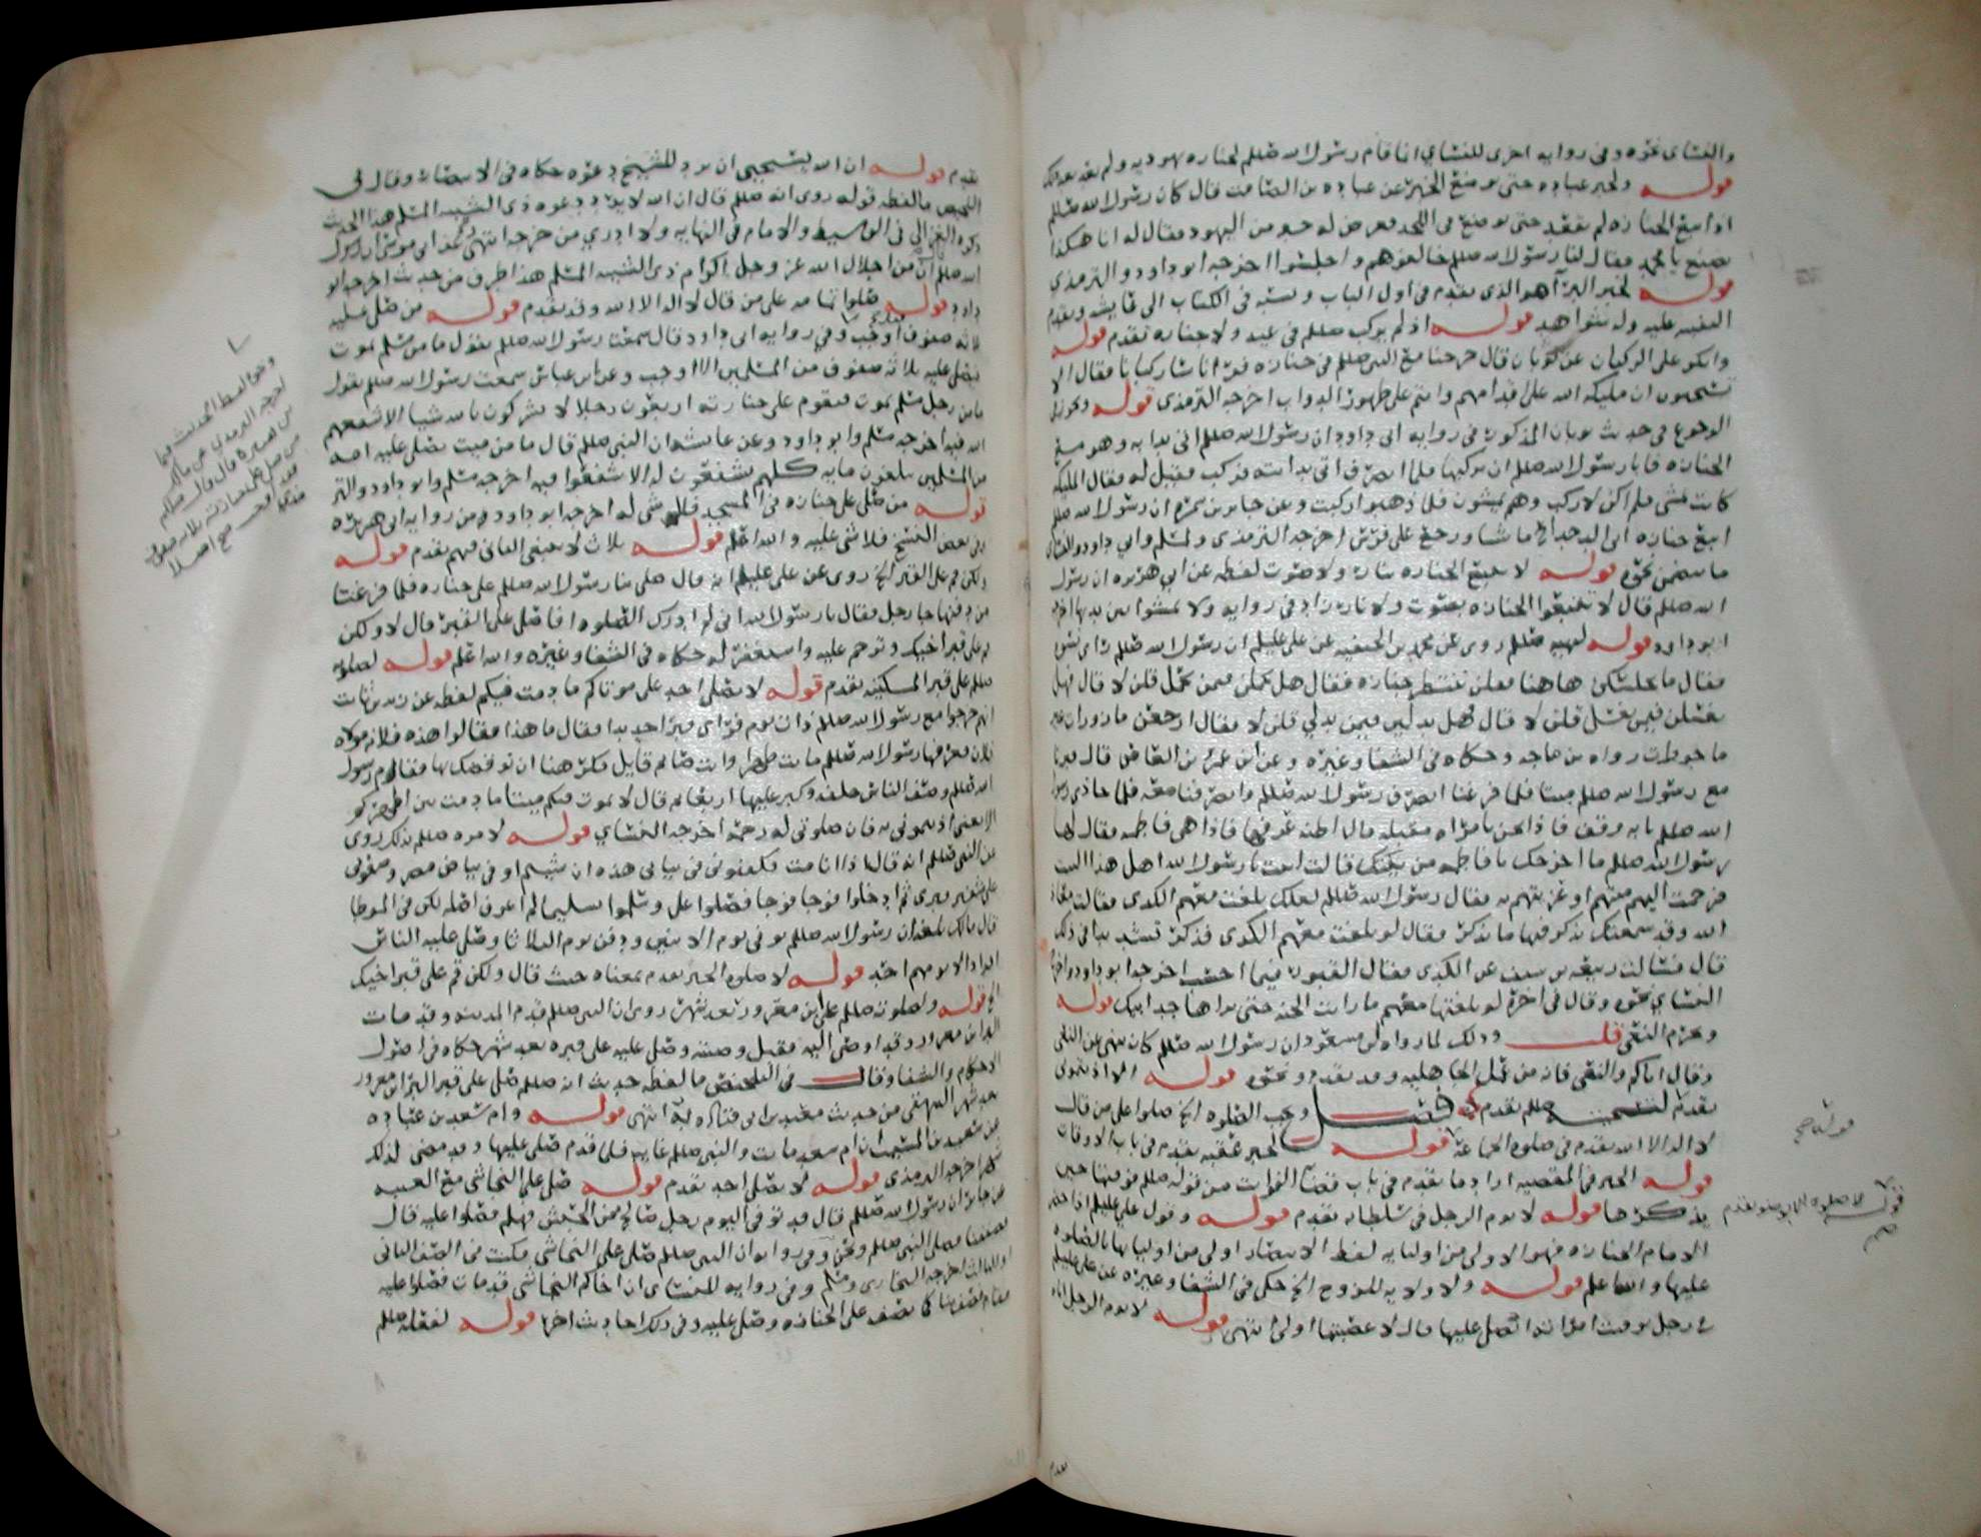 والنسائي نحوه وفي روايه اخرى للنسائي انما قام رسول الله صللم لجنازه يهوديه ولم يعد بعد ذلك
قوله ولخبر عباده حتى توضع الخ عن عباده بن الصامت قال كان رسول الله صللم
اذا اتبع الجنازه لم يقعد حتى توضع في اللحد فعرض له حبر من اليهود فقال له انا هكذا
نصنع يا محمد فقال لنا رسول الله صللم خالفوهم واجلسوا اخرجه ابو داود والترمذي
قوله لخبر البرآ هو الذي تقدم في اول الباب ونسبه في الكتاب الى عايشه وتقدم
التنبيه عليه وله شواهد قوله اذ لم يركب صللم في عيد ولا جنازه تقدم قوله
وانكر على الركبان عن ثوبان قال خرجنا مع النبي صللم في جنازه فرأى ناسا ركبانا فقال الا
تستحيون ان مليكه الله على اقدامهم وانتم على ظهور الدواب اخرجه الترمذي قوله
الرجوع في حديث ثوبان المذكور في روايه ابي داود ان رسول الله صللم اتي بدابه وهو مع
الجنازه فابا رسول الله صللم ان يركبها فلما انصرف اتي بدابته فركب فقيل له فقال المليكه
كانت تمشي فلم اكن لاركب وهم يمشون فلما ذهبوا ركبت وعن جابر بن سمره ان رسول الله صللم
اتبع جنازه ابن الدحداح ماشيا ورجع على فرس اخرجه الترمذي ولمسلم وابي داود والنسائي
ما يتضمن نحوه قوله لا تتبع الجنازه بنار ولا صوت لفظه عن ابي هريره ان رسول
الله صللم قال لا تتبعوا الجنازه بصوت ولا نار زاد في روايه ولا تمشوا بين يديها اخرجه
ابو داود قوله لنهيه صللم روى عن محمد بن الحنفيه عن علي عليلم ان رسول الله صللم راى نسوه
فقال ما يجلسكن هاهنا فقلن ننتظر جنازه فقال هل تحملن فيمن يحمل قلن لا قال فهل
تغسلن فيمن يغسل قلن لا قال فهل تدلين فيمن يدلي قلن لا فقال ارجعن مازورات غير
ماجورات رواه بن ماجه وحكاه في الشفا وغيره وعن ابن عمر بن العاص قال قبرنا
مع رسول الله صللم ميتا فلما فرغنا انصرف رسول الله صللم وانصرفنا معه فلما حاذى
الله صللم بابه وقف فاذا نحن بامرأه مقبله قال اظنه عرفها فاذا هي فاطمه فقال لها
رسول الله صللم ما اخرجك يا فاطمه من بيتك قالت اتيت يا رسول الله اهل هذا البيت
فرحمت اليهم ميتهم او عزيتهم به فقال رسول الله صللم لعلك بلغت معهم الكدى فقالت معاذ
الله وقد سمعتك تذكر فيها ما تذكر فقال لو بلغت معهم الكدى فذكر تشديدا في ذلك
قال فسالت ربيعه بن سيف عن الكدى فقال القبور فيما احسب اخرجه ابو داود
النسائي نحوه وقال في اخره لو بلغتها معهم ما رايت الجنه حتى يراها جد ابيك قوله
ويحرم النعي قلت وذلك لما رواه ابن مسعود ان رسول الله صللم كان ينهى عن النعي
وقال اياكم والنعي فانه من عمل الجاهليه وقد تقدم ونحوه قوله
تقدم صللم تقدم فصل وتجب الصلوه الخ صلوا على من قال
لا اله الا الله تقدم في صلوه الجماعه قوله لخبر عقبه تقدم في باب الاوقات
قوله الخبر في المقصيه اراد ما تقدم في باب قضآ الفوايت من قوله صللم فوقتها حين
يذكرها قوله لا يوم الرجل في سلطانه تقدم قوله وقول علي عليلم اذا حضر
الامام الجنازه فهو الاولى من اوليايه لفظ الانتصار اولى من اوليايها بالصلوه
عليها والله اعلم قوله ولا ولايه للزوج الخ حكى في الشفا وغيره عن علي عليلم
في رجل توفت امراته انصلي عليها قال لا عصبتها اولى انتهى قوله لا يوم الرجل اباه
قوله صح
قوله تقدم
تقدم
تقدم قوله ان الله يستحيي ان يرد للشيخ دعوه حكاه في الانتصار وقال في
التلخيص ما لفظه قوله روى انه صللم قال ان الله لا يرد دعوه ذي الشيبه المسلم هذا الحديث
ذكره الغزالي في الوسيط والامام في النهايه ولا ادري من خرجه انتهى نعم عن ابي موسى ان رسول
الله صللم قال ان من اجلال الله عز وجل اكرام ذي الشيبه المسلم هذا طرف من حديث اخرجه ابو
داود قوله صلوا تمامه على من قال لا اله الا الله وقد تقدم قوله من صلى عليه
ثلاثه صفوف اوجب وفي روايه ابي داود قال سمعت رسول الله صللم يقول ما من مسلم يموت
فيصلي عليه ثلاثه صفوف من المسلمين الا اوجب وعن ابن عباس سمعت رسول الله صللم يقول
ما من رجل مسلم يموت فيقوم على جنازته اربعون رجلا لا يشركون بالله شيا الا شفعهم
الله فيه اخرجه مسلم وابو داود وعن عايشه ان النبي صللم قال ما من ميت يصلي عليه امه
من المسلمين يبلغون مايه كلهم يشفعون له الا شفعوا فيه اخرجه مسلم
قوله من صلى على جنازه في المسجد فلا شي له اخرجه ابو داود من روايه ابي هريره
وفي بعض النسخ فلا شي عليه والله اعلم قوله بلا ث لا يعيني الثاني فيهم تقدم قوله
ولكن قم على القبر الخ روى عن علي عليلم انه قال صلى بنا رسول الله صللم على جنازه فلما فرغنا
من دفنها جا رجل فقال يا رسول الله اني لم ادرك الصلوه افاصلي على القبر قال لا ولكن
قم على قبر اخيك وترحم عليه واستغفر له حكاه في الشفا وغيره والله اعلم قوله لصلوته
صللم على قبر المسكينه تقدم قوله لا يصلي احد على موتاكم ما دمت فيكم لفظه عن زيد بن ثابت
انهم خرجوا مع رسول الله صللم ذات يوم فراى قبرا جديدا فقال ما هذا فقالوا هذه فلانه مولاه
فلان فعرفها رسول الله صللم ماتت ظهرا وانت صايم قايل فكرهنا ان نوقضك بها فقام رسول
الله صللم وصف الناس خلفه وكبر عليها اربعا ثم قال لا يموت فيكم ميتا ما دمت بين اظهركم
الا يعني اذنتموني به فان صلوتي له رحمه اخرجه النسائي قوله لامره صللم بذلك روى
عن النبي صللم انه قال اذا انا مت فكفنوني في ثيابي هذه ان شيتم او في بياض مصر وضعوني
على شفير قبري ثم ادخلوا فوجا فوجا فصلوا علي وسلموا تسليما لم اعرف اصله لكن في الموطا
قال مالك بلغه ان رسول الله صللم توفي يوم الاثنين ودفن يوم الثلاثا وصلى عليه الناس
افرادا لا يومهم احد قوله لا صلوه الخبر تقدم بمعناه حيث قال ولكن قم على قبر اخيك
الخ قوله ولصلوته صللم على ابن معرور بعد شهر روى ان النبي صللم قدم المدينه وقد مات
البرا بن معرور وقد اوصى اليه فقبل وصيته وصلى عليه على قبره بعد شهر حكاه في اصول
الاحكام والشفا وقال في التلخيص ما لفظه حديث انه صللم صلى على قبر البرا بن معرور
بعد شهر البيهقي من حديث معبد بن ابي قتاده انتهى قوله وام سعد بن عباده
عن سعيد بن المسيب ان ام سعد ماتت والنبي صللم غايب فلما قدم صلى عليها وقد مضى لذلك
شهر اخرجه الترمذي قوله لا يصلي احد تقدم قوله صلى على النجاشي مع الغيبه
عن جابر ان رسول الله صللم قال قد توفي اليوم رجل صالح من الحبش فهلم فصلوا عليه قال
فصففنا فصلى النبي صللم ونحن وفي روايه ان النبي صللم صلى على النجاشي فكنت في الصف الثاني
او الثالث اخرجه البخاري ومسلم وفي روايه للنسائي ان اخاكم النجاشي قد مات فصلوا عليه
فقام فصففنا كما نصف على الجنازه وصلى عليه وفي ذلك احاديث اخر قوله لفعله صللم